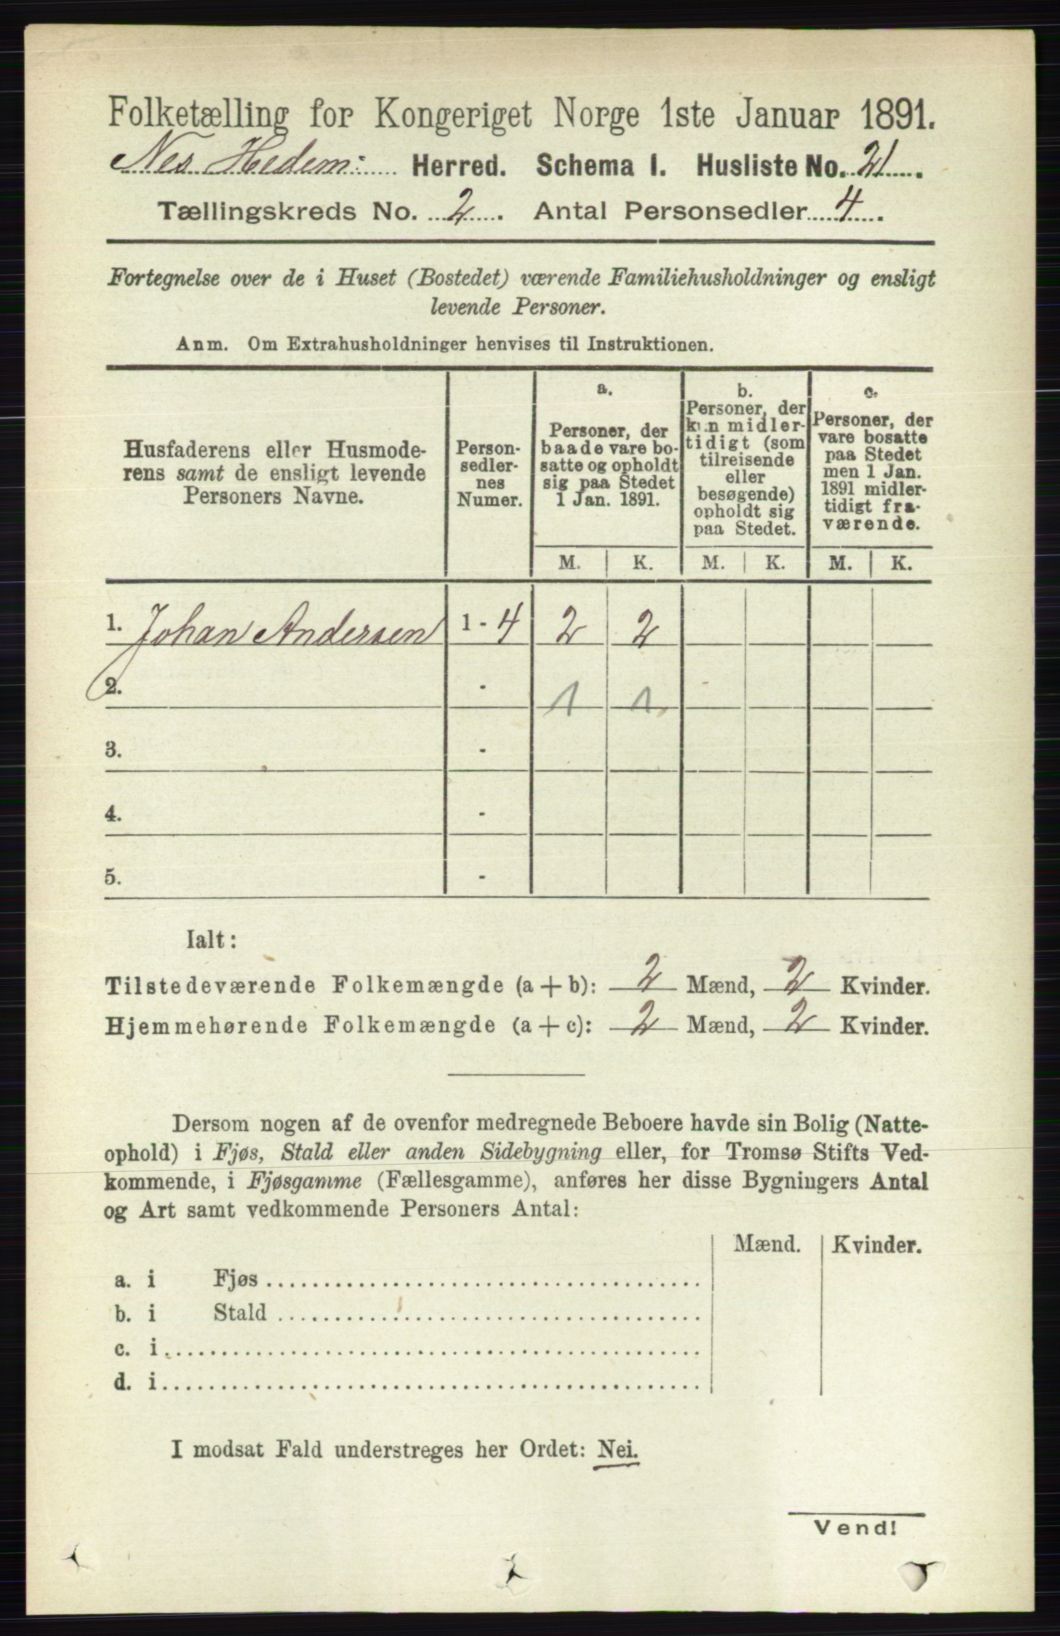 Folketælling for Kongeriget Norge 1ste Januar 1891.
Nes Hedem: Herred. Schema I. Husliste No. 21.
Tællingskreds No. 2. Antal Personsedler 4.
Fortegnelse over de i Huset (Bostedet) værende Familiehusholdninger og ensligt
levende Personer.
Anm. Om Extrahusholdninger henvises til Instruktionen.
Husfaderens eller Husmode-
rens samt de ensligt levende
Personers Navne.
Person-
sedler-
nes
Numer.
a.
Personer, der
baade vare bo-
satte og opholdt
sig paa Stedet
1 Jan. 1891.
b.
Personer, der
kun midler-
tidigt (som
tilreisende
eller
besøgende)
opholdt sig
paa Stedet.
c.
Personer, der
vare bosatte
paa Stedet
men 1 Jan.
1891 midler-
tidigt fra-
værende.
M. K. M. K. M. K.
1. Johan Andersen 1 - 4 2 2
2. - 1 1
3. -
4. -
5. -
Ialt:
Tilstedeværende Folkemængde (a + b): 2 Mænd, 2 Kvinder.
Hjemmehørende Folkemængde (a + c): 2 Mænd, 2 Kvinder.
Dersom nogen af de ovenfor medregnede Beboere havde sin Bolig (Natte-
ophold) i Fjøs, Stald eller anden Sidebygning eller, for Tromsø Stifts Ved-
kommende, i Fjøsgamme (Fællesgamme), anføres her disse Bygningers Antal
og Art samt vedkommende Personers Antal:
Mænd. Kvinder.
a. i Fjøs
b. i Stald
c. i
d. i
I modsat Fald understreges her Ordet: Nei.
Vend!